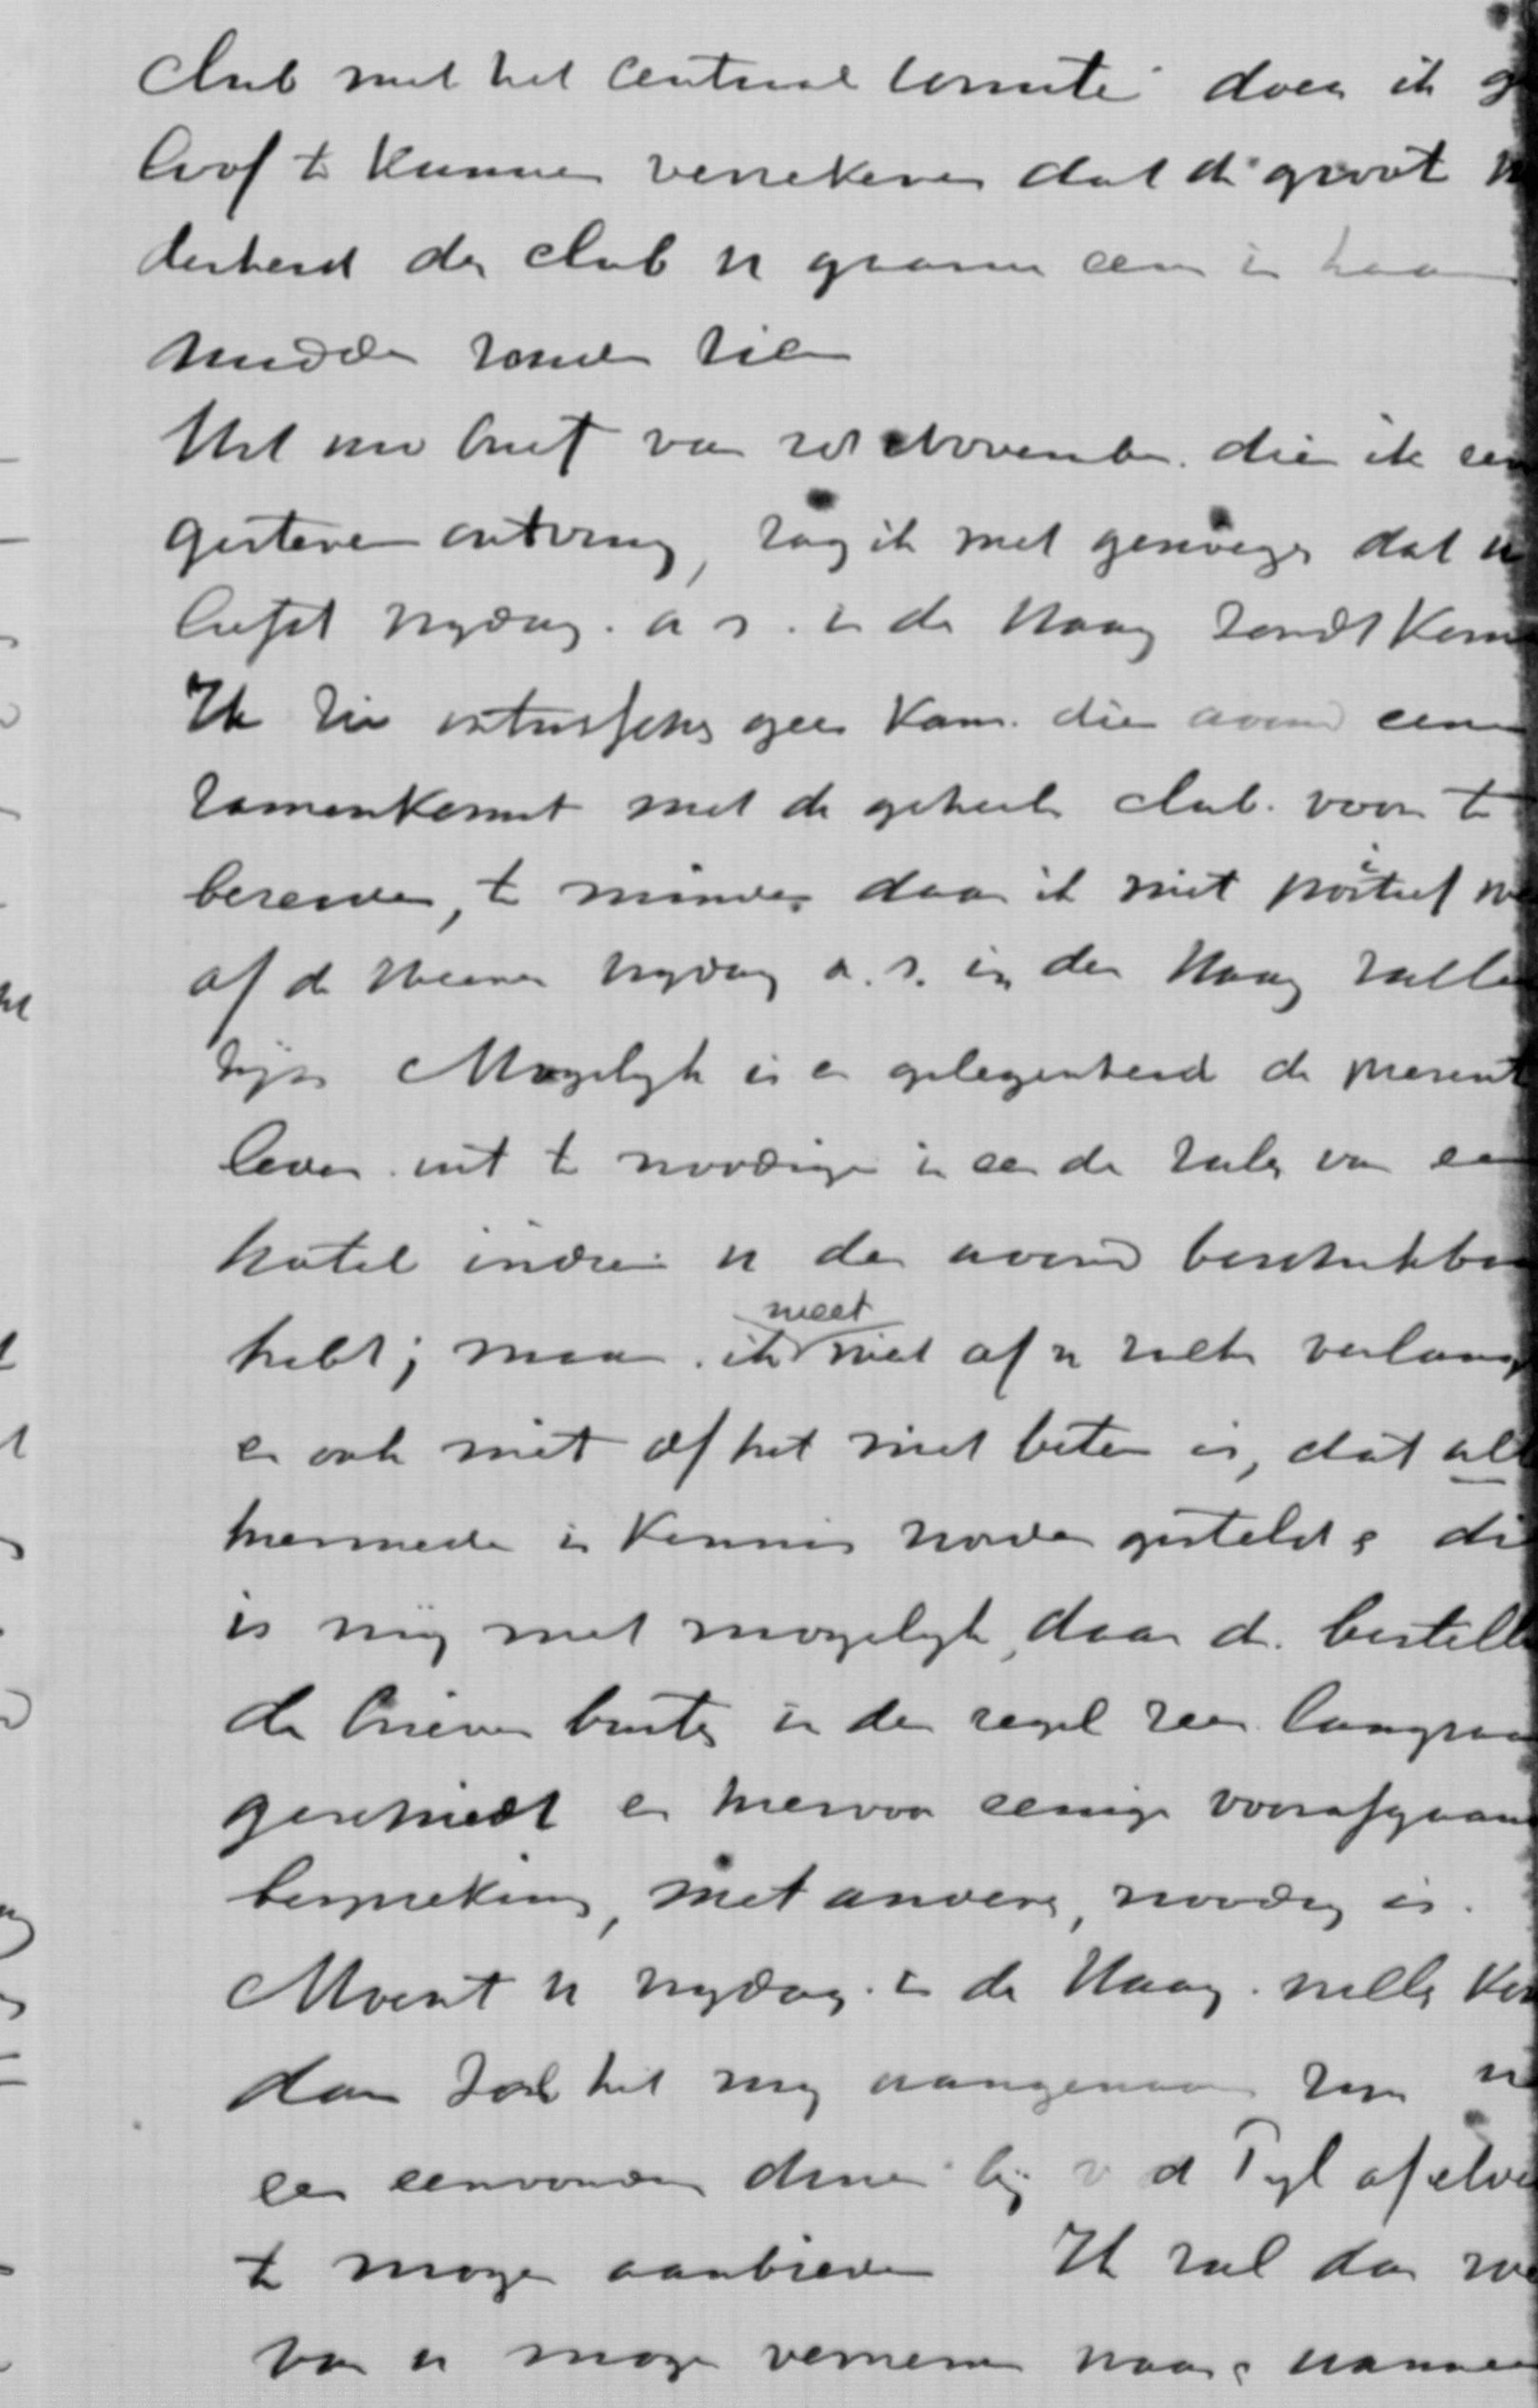 Club met het Centraal Comité doen ik g
loof te kunnen verzekeren dat de groot m
derheid der club u gaarne eens in haar
midden zoude zien
Uit uw brief van November die ik eerst
gisteren ontving, zag ik met genoegen dat u
liefst vrydag a s. in den Haag zoudt kom
Ik zie echter geen kans dien avond eene
zamenkomst met de geheele club voor te
bereiden, te minder daar ik niet positief we
of de Heeren vrydag a. s. in den Haag zullen
zijn Mogelyk is er gelegenheid de present
leden uit te noodigen in een der zalen van een
hotel indien u den avond beschikbaar
hebt; maar ik weet niet of u zulks verlang
en ook niet of het niet beter is, dat alle
hiermede in kennis worden gesteld; dit
is mij niet mogelyk, daar de bestelling
der brieven buiten in den regel zeer langzaam
geschiedt en hiervoor eenige voorafgaande
bespreking, met anderen, noodig is.
Mocht u vrydag in den Haag willen kom
dan zal het my aangenaam zyn u
een eenvoudig diner bij v d Pyl of elders
te mogen aanbieden Ik zal dan
van u mogen vernemen waar & wanneer